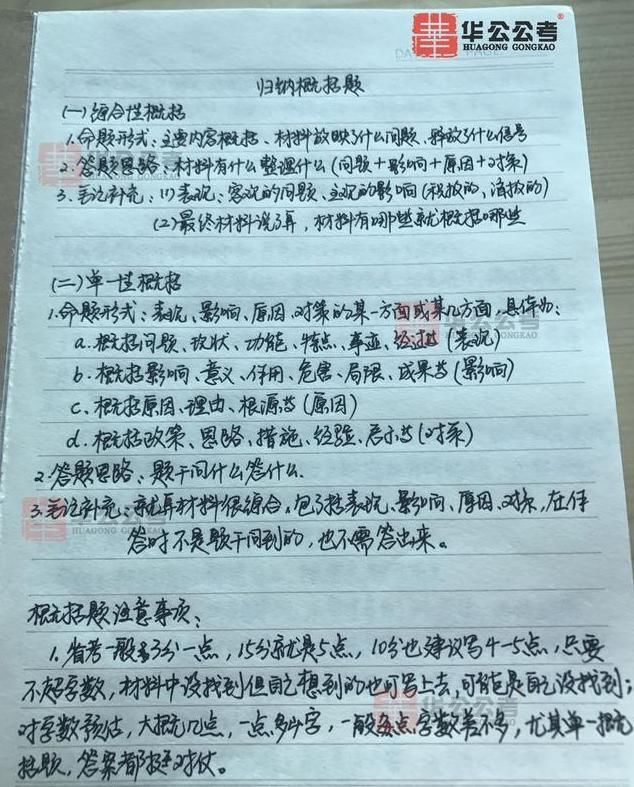 华公公考®
HUAGONG GONGKAO
归纳概括题
(一)综合性概括
1.命题形式:主要内容概括、材料反映了什么问题、释放了什么信号
2.答题思路:材料有什么整理什么(问题+影响+原因+对策)
3.笔记补充:(1)表现:客观的问题、主观的影响(积极的、消极的)
(2)最终材料说了算,材料有哪些就概括哪些
(二)单一性概括
1.命题形式:表现、影响、原因、对策的某一方面或某几方面,具体如:
a.概括问题、现状、功能、特点、事迹、经过等(表现)
b.概括影响、意义、作用、危害、局限、成果等(影响)
c.概括原因、理由、根源等(原因)
d.概括政策、思路、措施、经验、启示等(对策)
2.答题思路、题干问什么答什么.
3.笔记补充、就算材料很综合。包了括表现、影响、原因、对策,在作
答时不是题干问到的,也不需答出来。
概括题注意事项:
1.省考一般多3分一点,15分就是5点,10分也建议写4-5点,只要
不超字数,材料中没找到但自己想到的也可写上去,可能是自己没找到;
对字数预估,大概几点,一点多少字,一般每点字数差不多,尤其单一概
括题,答案都较对仗。